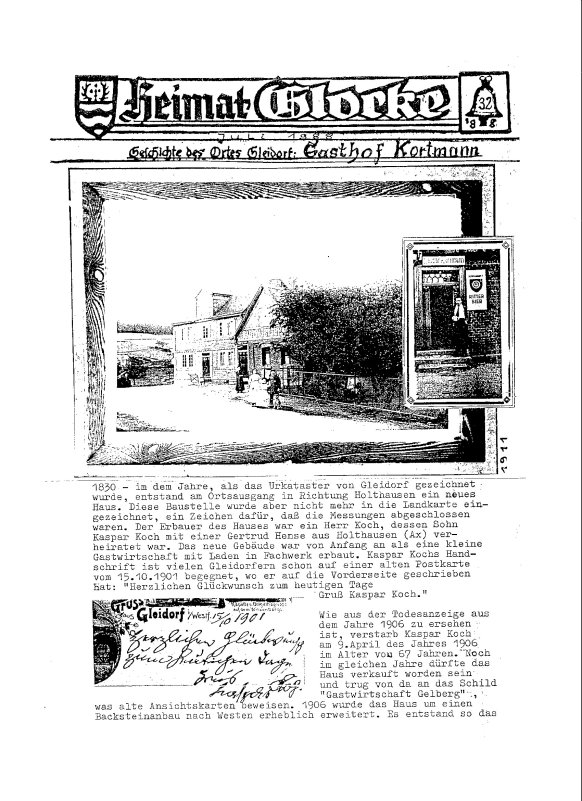 Heimat-Glocke
32
1988
JULI 1988
Geschichte des Ortes Gleidorf: Gasthof Kortmann
RITTER
BIER
1911
1830 - im dem Jahre, als das Urkataster von Gleidorf gezeichnet
wurde, entstand am Ortsausgang in Richtung Holthausen ein neues
Haus. Diese Baustelle wurde aber nicht mehr in die Landkarte ein-
gezeichnet, ein Zeichen dafür, daß die Messungen abgeschlossen
waren. Der Erbauer des Hauses war ein Herr Koch, dessen Sohn
Kaspar Koch mit einer Gertrud Hense aus Holthausen (Ax) ver-
heiratet war. Das neue Gebäude war von Anfang an als eine kleine
Gastwirtschaft mit Laden in Fachwerk erbaut. Kaspar Kochs Hand-
schrift ist vielen Gleidorfern schon auf einer alten Postkarte
vom 15.10.1901 begegnet, wo er auf die Vorderseite geschrieben
hat: "Herzlichen Glückwunsch zum heutigen Tage
Gruß Kaspar Koch."
Gruss
aus Gleidorf i/Westf. 15/10 1901
Herzlichen Glückwunsch
zum heutigen Tage
Gruß
Wie aus der Todesanzeige aus
dem Jahre 1906 zu ersehen
ist, verstarb Kaspar Koch
am 9.April des Jahres 1906
im Alter von 67 Jahren. Noch
im gleichen Jahre dürfte das
Haus verkauft worden sein
und trug von da an das Schild
"Gastwirtschaft Gelberg",
was alte Ansichtskarten beweisen. 1906 wurde das Haus um einen
Backsteinanbau nach Westen erheblich erweitert. Es entstand so das